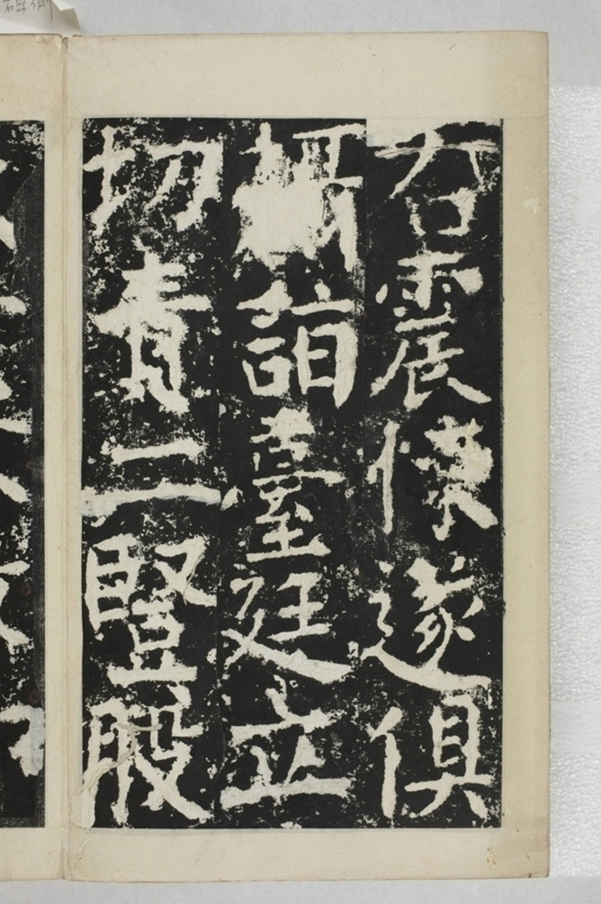 右震遂俱
攝詣臺廷立
切責二豎股